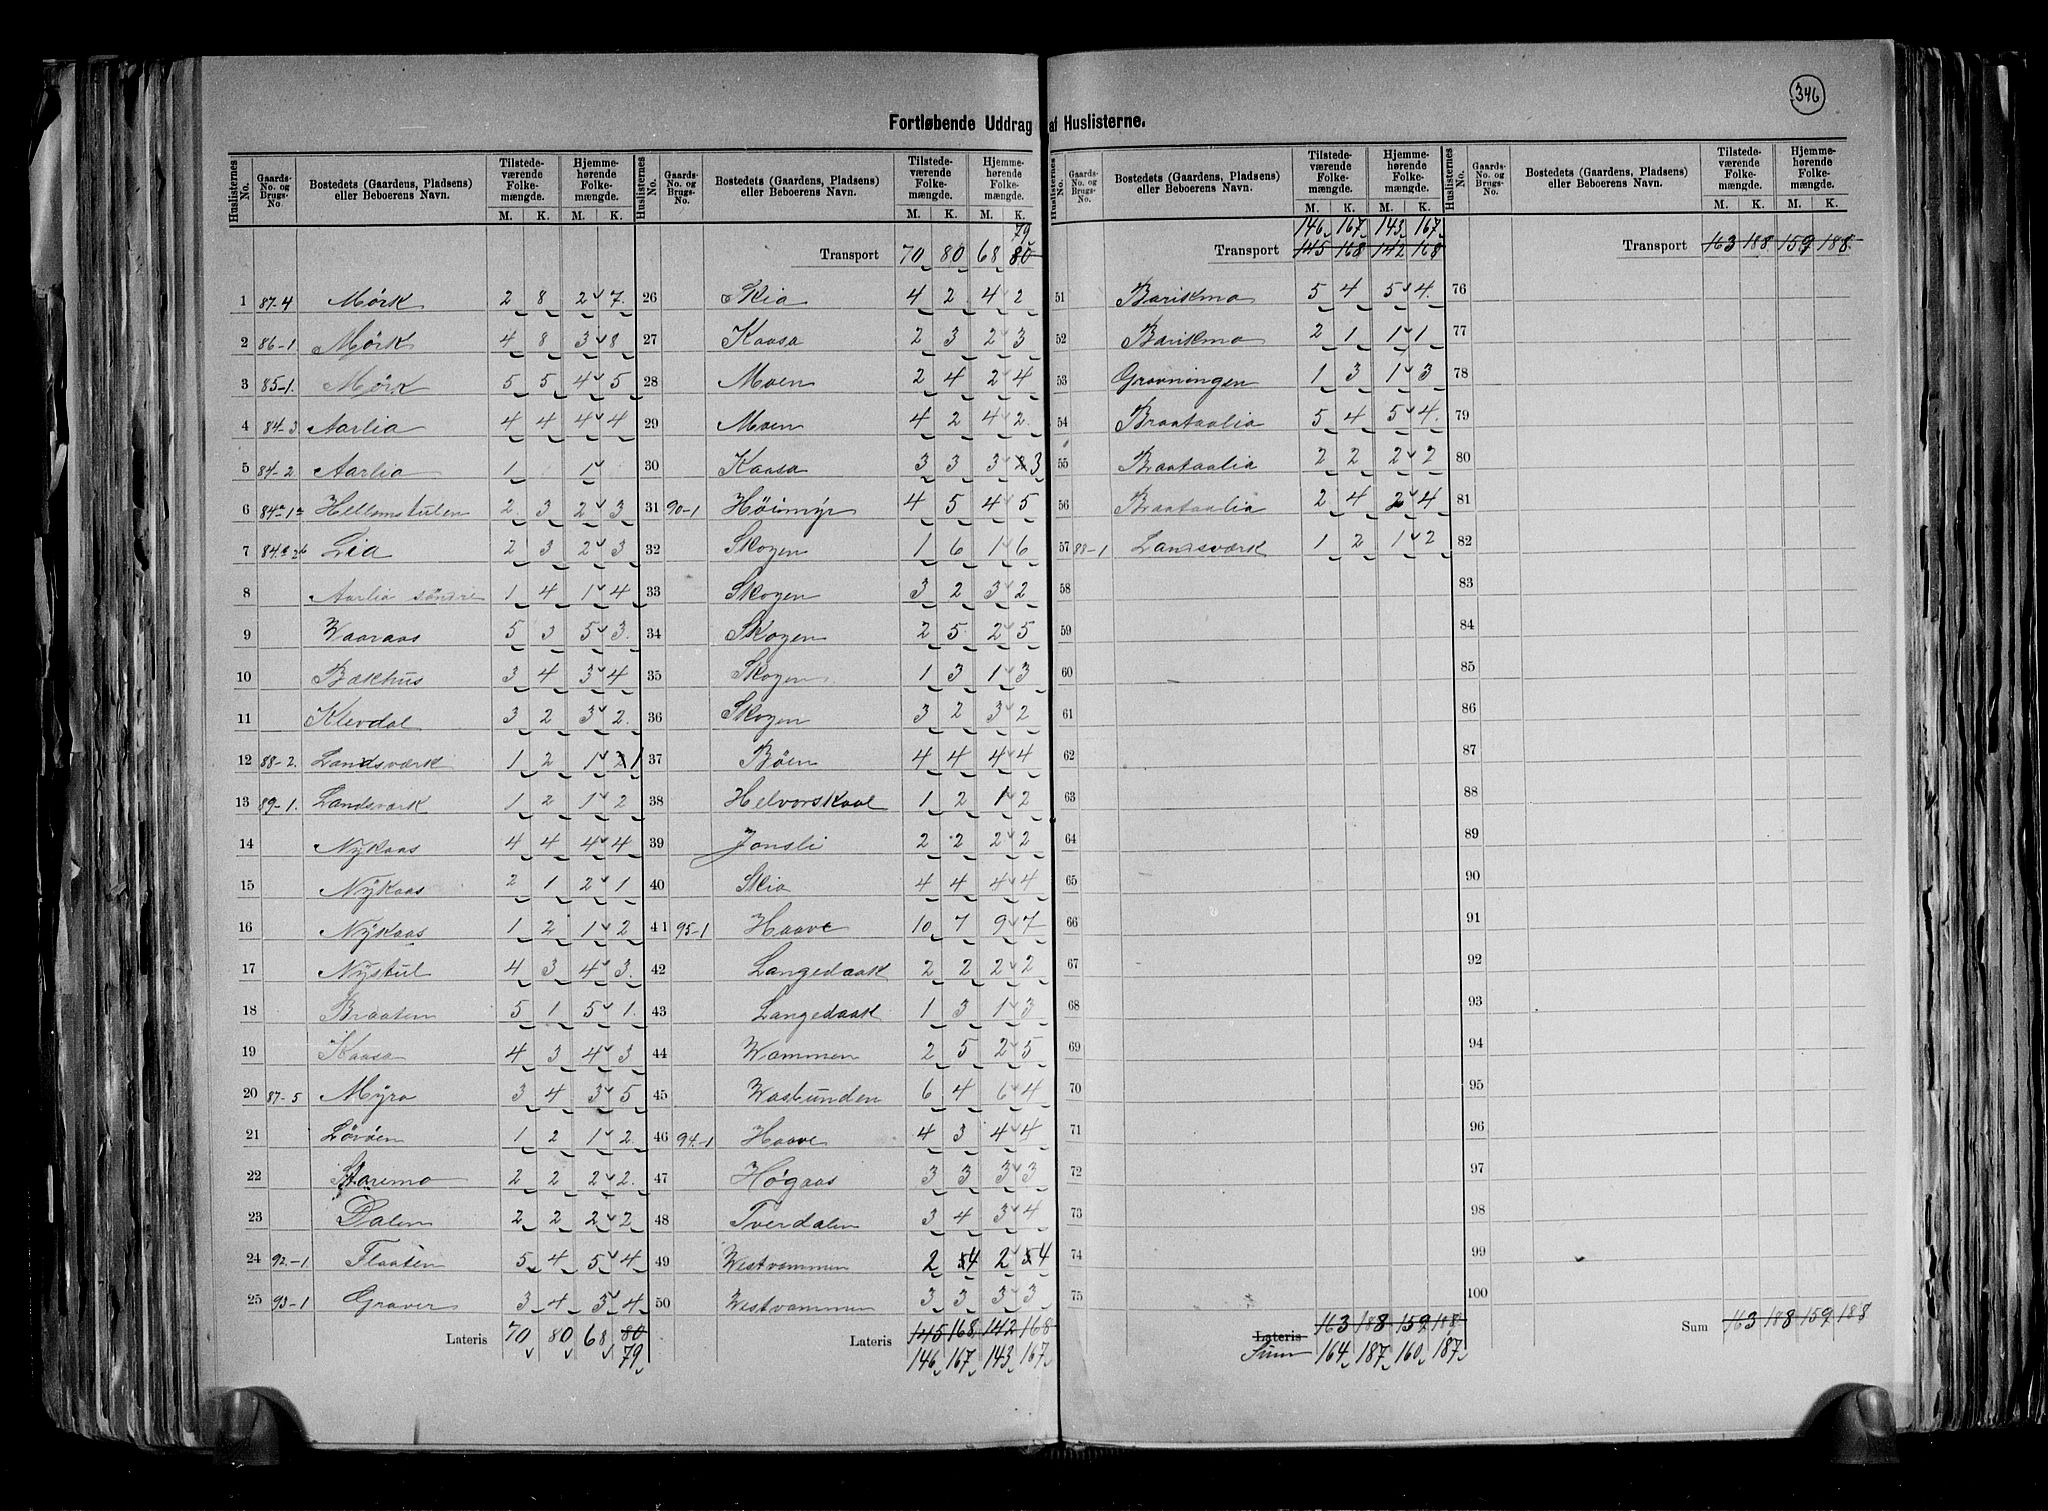 346
Fortløbende Uddrag af Huslisterne.
Huslisternes No. Gaards-No. og Brugs-No. Bostedets (Gaardens, Pladsens) eller Beboerens Navn. Tilstedeværende Folkemængde. M. K. Hjemmehørende Folkemængde. M. K.
1 87-4 Mørk 2 8 2 7
2 86-1 Mørk 4 8 3 8
3 85-1. Mørk 5 5 4 5
4 84-3 Aarlia 4 4 4 4
5 84-2 Aarlia 1 1
6 Hellemstulen 2 3 2 3
7 Lia 2 3 2 3
8 Aarlia söndre 1 4 1 4
9 Waaraas 5 3 5 3
10 Bækhus 3 4 3 4
11 Klevdal 3 2 3 2
12 88-2. Landsværk 1 2 1 2 1
13 89-1. Landsværk 1 2 1 2
14 Nykaas 4 4 4 4
15 Nykaas 2 1 2 1
16 Nykaas 1 2 1 2
17 Nystul 4 3 4 3
18 Braaten 5 1 5 1
19 Kaasa 4 3 4 3
20 87-5 Myra 3 4 3 5
21 Løvåen 1 2 1 2
22 Staremo 2 2 2 2
23 Dalen 2 2 2 2
24 92-1 Flaaten 5 4 5 4
25 93-1 Graver 3 4 3 4
Lateris 70 80 68 80
79
Huslisternes No. Gaards-No. og Brugs-No. Bostedets (Gaardens, Pladsens) eller Beboerens Navn. Tilstedeværende Folkemængde. M. K. Hjemmehørende Folkemængde. M. K.
79
Transport 70 80 68 80
26 Skia 4 2 4 2
27 Kaasa 2 3 2 3
28 Moen 2 4 2 4
29 Moen 4 2 4 2
30 Kaasa 3 3 3 3
31 90-1 Høimyr 4 5 4 5
32 Skogen 1 6 1 6
33 Skogen 3 2 3 2
34 Skogen 2 5 2 5
35 Skogen 1 3 1 3
36 Skogen 3 2 3 2
37 Bøen 4 4 4 4
38 Helvorskaal 1 2 1 2
39 Jonsli 2 2 2 2
40 Skia 4 4 4 4
41 95-1 Haave 10 7 9 7
42 Langedaak 2 2 2 2
43 Langedaak 1 3 1 3
44 Wammen 2 5 2 5
45 Wastunden 6 4 6 4
46 94-1 Haave 4 3 4 4
47 Høgaas 3 3 3 3
48 Tverdalen 3 4 3 4
49 Westvammen 2 5 4 2 5 4
50 Westvammen 3 3 3 3
Lateris 145 168 142 168
146 167 143 167
Huslisternes No. Gaards-No. og Brugs-No. Bostedets (Gaardens, Pladsens) eller Beboerens Navn. Tilstedeværende Folkemængde. M. K. Hjemmehørende Folkemængde. M. K.
146 167 143 167
Transport 145 168 142 168
51 Barikmo 5 4 5 4
52 Barikmo 2 1 1 1
53 Gravningen 1 3 1 3
54 Braataalia 5 4 5 4
55 Braataalia 2 2 2 2
56 Braataalia 2 4 2 4
57 88-1 Landsværk 1 2 1 2
58
59
60
61
62
63
64
65
66
67
68
69
70
71
72
73
74
75
Lateris 163 188 159 188
Sum 164 187 160 187
Huslisternes No. Gaards-No. og Brugs-No. Bostedets (Gaardens, Pladsens) eller Beboerens Navn. Tilstedeværende Folkemængde. M. K. Hjemmehørende Folkemængde. M. K.
Transport 163 188 159 188
76
77
78
79
80
81
82
83
84
85
86
87
88
89
90
91
92
93
94
95
96
97
98
99
100
Sum 163 188 159 188